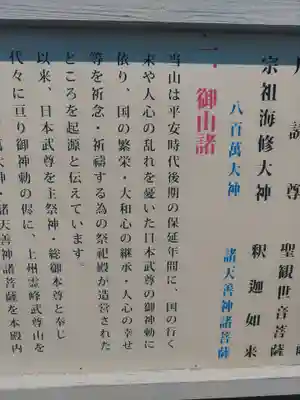 宗祖海修大神 釈迦如来
聖観世音菩薩
八百萬大神 諸天善神諸菩薩
一、御山諸
当山は平安時代後期の保延年間に、国の行く
末や人心の乱れを憂いた日本武尊の御神勅に
依り、国の繁栄・大和心の継承・人心の幸せ
等を祈念・祈禱する為の祭祀殿が造営された
ところを起源と伝えています。
以来、日本武尊を主祭神・総御本尊と奉じ
代々に亘り御神勅の侭に、上州霊峰武尊山を
萬大神・諸天善神諸菩薩を本殿内